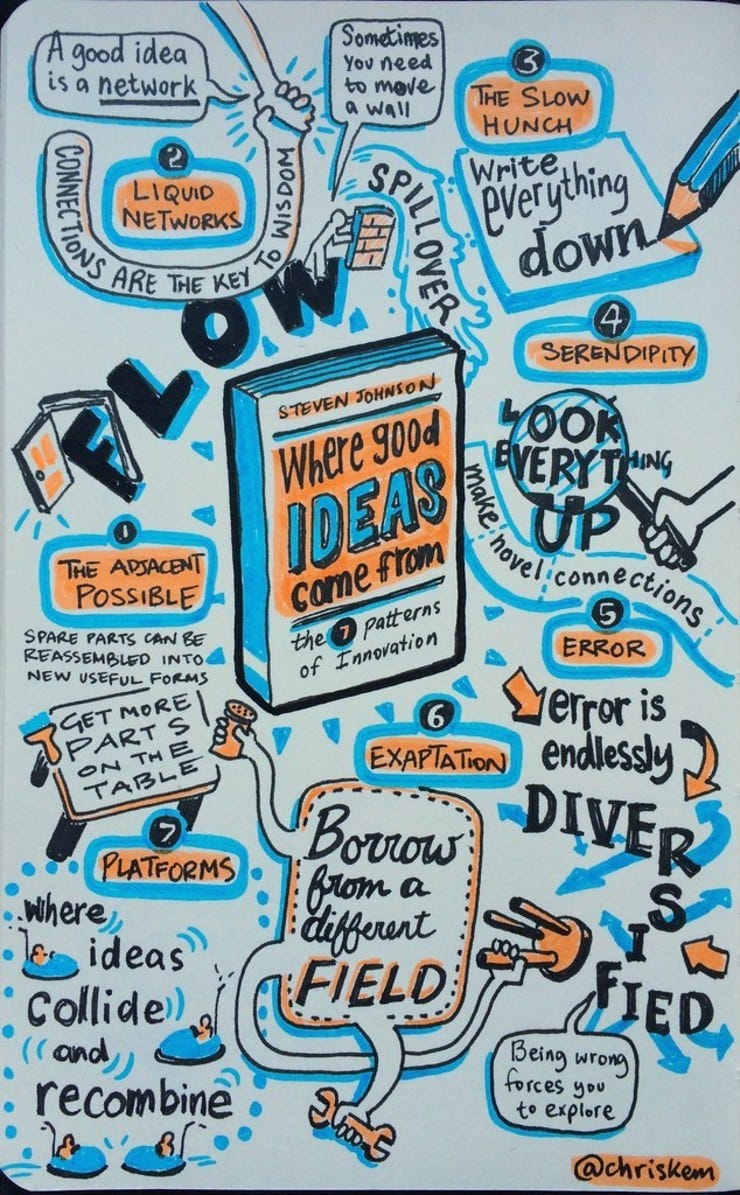 A good idea
is a network
Sometimes
you need
to move
a wall
2
LIQUID
NETWORKS
CONNECTIONS ARE THE KEY TO WISDOM
FLOW
SPILLOVER
3
THE SLOW
HUNCH
Write
everything
down
4
SERENDIPITY
LOOK
EVERYTHING
UP
make novel connections
STEVEN JOHNSON
Where good
IDEAS
come from
the 7 patterns
of Innovation
1
THE ADJACENT
POSSIBLE
SPARE PARTS CAN BE
REASSEMBLED INTO
NEW USEFUL FORMS
GET MORE
PARTS
ON THE
TABLE
5
ERROR
error is
endlessly
DIVERSIFIED
Being wrong
forces you
to explore
6
EXAPTATION
Borrow
from a
different
FIELD
7
PLATFORMS
where
ideas
collide
and
recombine
@chriskem